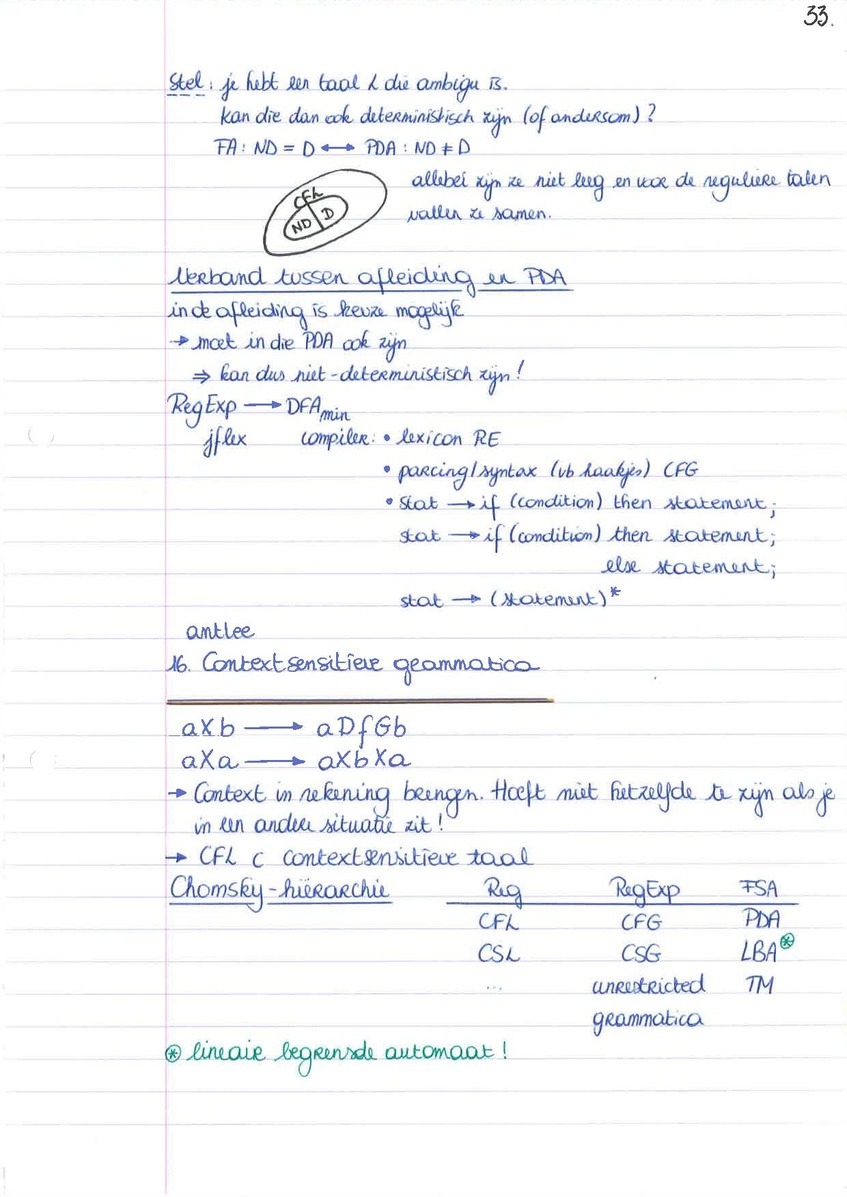 33.
Stel: je hebt een taal L die ambigu is.
kan die dan ook deterministisch zijn (of andersom)?
FA: ND = D ↔ PDA: ND ≠ D
allebei zijn ze niet leeg en voor de reguliere talen
vallen ze samen.
CFL
ND D
Verband tussen afleiding en PDA
in de afleiding is keuze mogelijk
→ moet in die PDA ook zijn
⇒ kan dus niet-deterministisch zijn!
RegExp → DFAmin
jflex compiler: • lexicon RE
• parcing/syntax (vb haakjes) CFG
• stat → if (condition) then statement;
stat → if (condition) then statement;
else statement;
stat → (statement)*
antlee
16. Contextsensitieve grammatica
aXb → aDfGb
aXa → aXbXa
→ Context in rekening brengen. Hoeft niet hetzelfde te zijn als je
in een andere situatie zit!
→ CFL ⊂ contextsensitieve taal
Chomsky-hiërarchie Reg RegExp FSA
CFL CFG PDA
CSL CSG LBA⊛
... unrestricted TM
grammatica
⊛ lineair begrensde automaat!